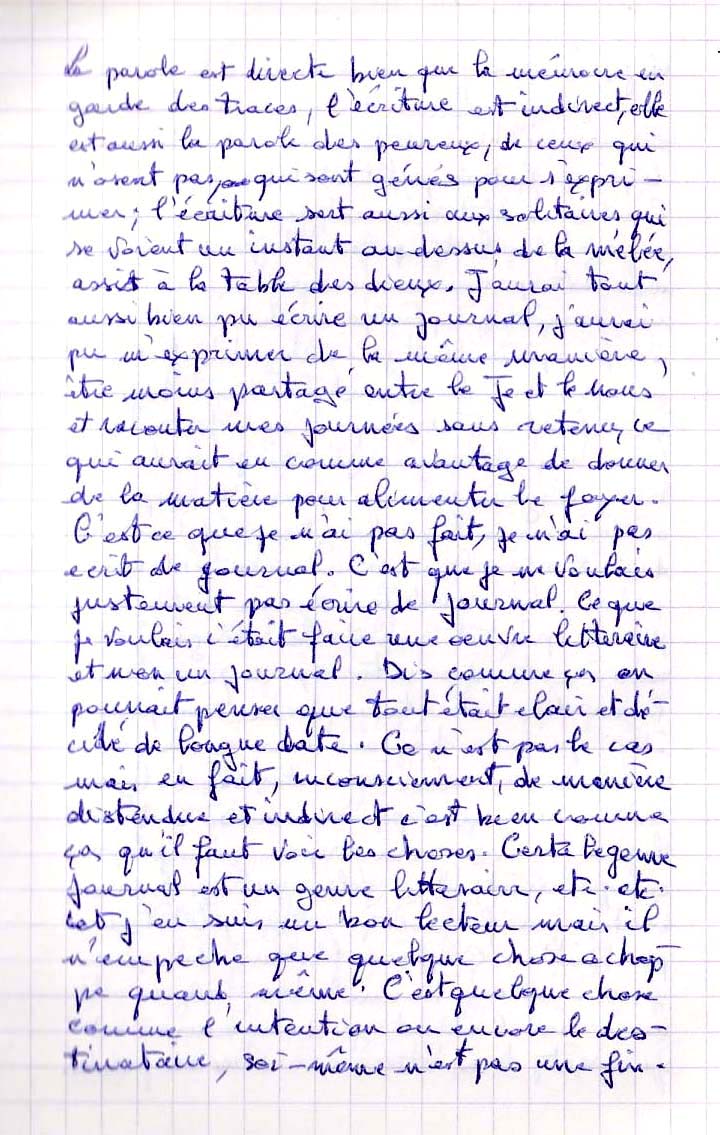 La parole est directe bien que la mémoire en
garde des traces, l'écriture est indirect, elle
est aussi la parole des peureux, de ceux qui
n'osent pas, qui sont génés pour s'expri-
mer; l'écriture sert aussi aux solitaires qui
se voient un instant au dessus de la mélée,
assis à la table des dieux. J'aurai tout
aussi bien pu écrire un journal, j'aurai
pu m'exprimer de la même manière,
être moins partagé entre le Je et le nous
et raconter mes journées sans retenue, ce
qui aurait eu comme avantage de donner
de la matière pour alimenter le foyer.
C'est ce que je n'ai pas fait, je n'ai pas
ecrit de journal. C'est que je ne voulais
justement pas écrire de journal. Ce que
je voulais c'était faire une oeuvre litteraire
et non un journal. Dis comme ça on
pourrait penser que tout était clair et dé-
cidé de longue date. Ce n'est pas le cas
mais en fait, inconsciemment, de manière
distendue et indirect c'est bien comme
ça qu'il faut voir les choses. Certe le genre
journal est un genre litteraire, etc. etc.
et j'en suis un bon lecteur mais il
n'empeche que quelque chose achop-
pe quand même. C'est quelque chose
comme l'intention ou encore le des-
tinataire, soi-même n'est pas une fin.